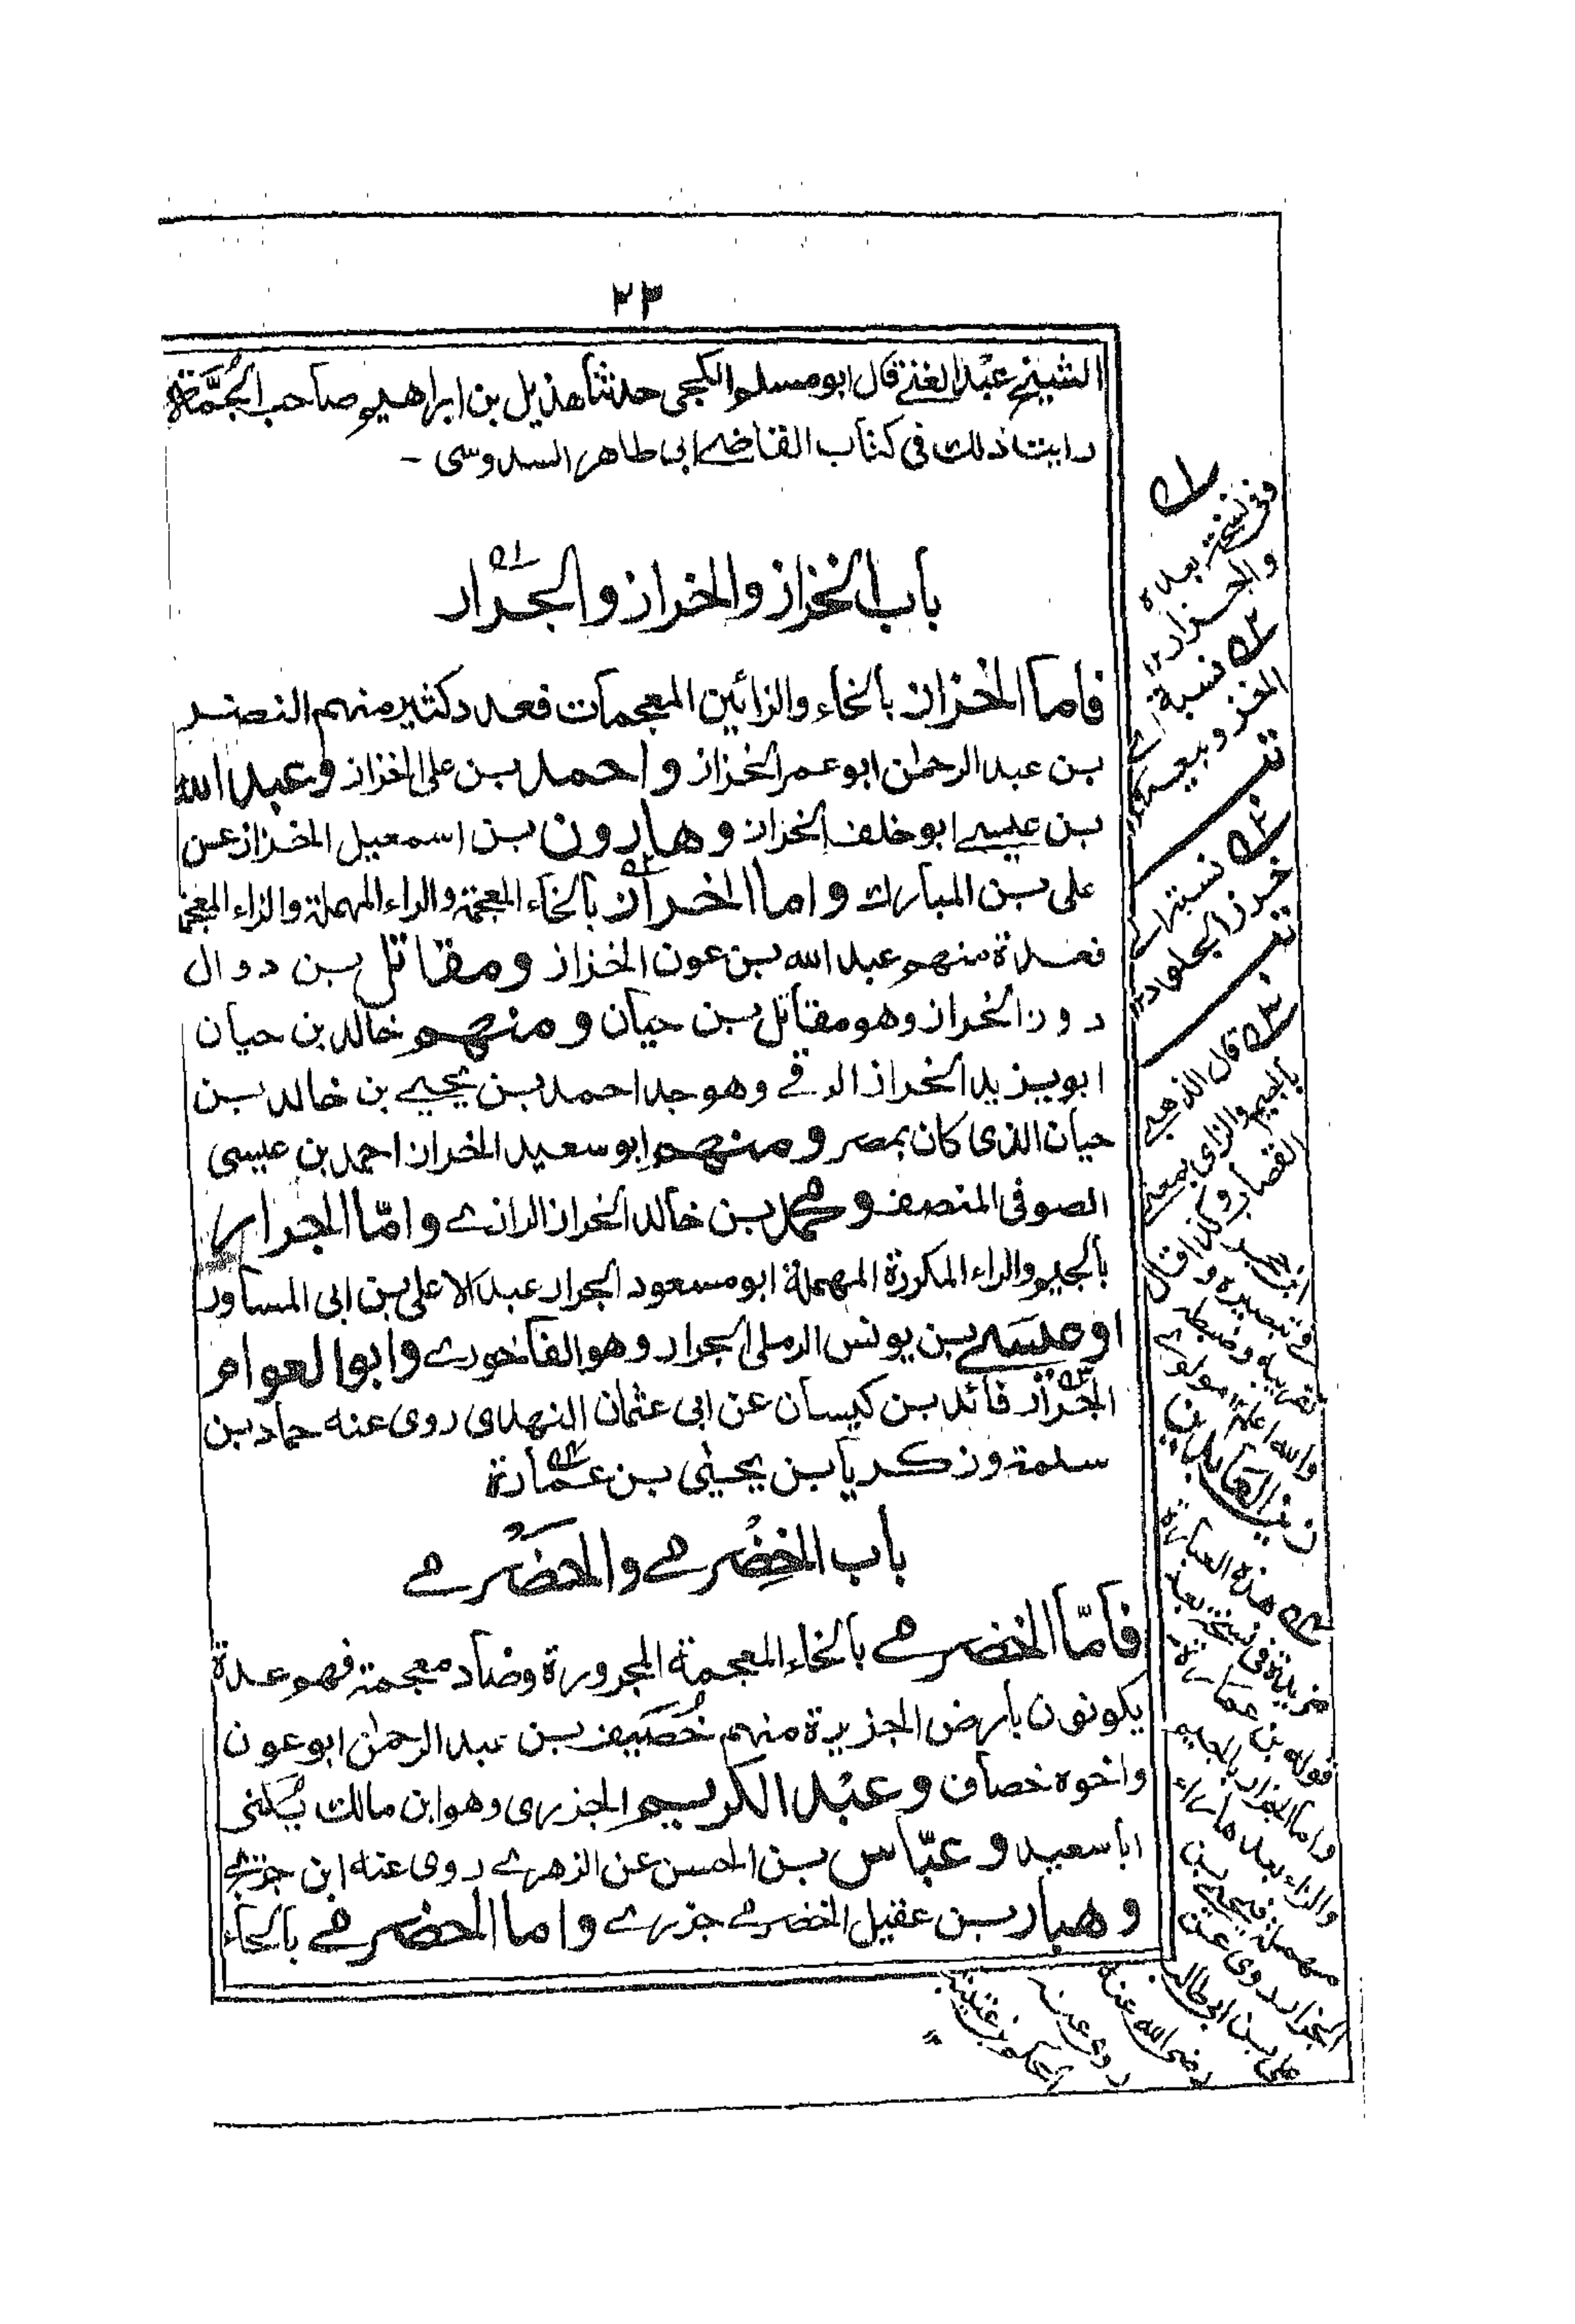 ٢٣
الشيخ عبد الغنى قال ابو مسلم الكجى حدثنا هذيل بن ابراهيم صاحب الجُمَّة
رايت ذلك فى كتاب القاضى ابى طاهر السدوسى -
باب الخزاز والخراز والجرار
فاما الخزاز بالخاء والزائين المعجمات فعدد كثير منهم النضر
بن عبد الرحمٰن ابو عمر الخزاز واحمد بن على الخزاز وعبد الله
بن عيسى ابو خلف الخزاز وهارون بن اسمعيل الخزاز عن
على بن المبارك واما الخراز بالخاء المعجمة والراء المهملة والزاء المعجمة
فعدة منهم عبد الله بن عون الخراز ومقاتل بن دوال
دوز الخراز وهو مقاتل بن حيان ومنهم خالد بن حيان
ابو يزيد الخراز الرقى وهو جد احمد بن يحيى بن خالد بن
حيان الذى كان بمصر ومنهم ابو سعيد الخراز احمد بن عيسى
الصوفى المنصف ومحمد بن خالد الخراز الرازى وامّا الجرار
بالجيم والراء المكررة المهملة ابو مسعود الجرار عبد الاعلى بن ابى المساور
او عيسى بن يونس الرملى الجرار وهو الفاخورى وابو العوام
الجزار فائد بن كيسان عن ابى عثمان النهدى روى عنه حماد بن
سلمة وزكريا بن يحيىٰ بن عمارة
باب الخِضْرمى والحَضْرمى
فامّا الخضرمى بالخاء المعجمة المجرورة وضاد معجمة فهم عدة
يكونون بارض الجزيرة منهم خُصَيف بن عبد الرحمٰن ابو عون
واخوه خصاف وعبد الكريم الجزرى وهو ابن مالك يُكنى
ابا سعيد وعبّاس بن الحسن عن الزهرى روى عنه ابن جريج
وهبار بن عقيل الخضرمى جزرى واما الحضرمى بالحاء
وفى نسخة بعده
والجزار ١٢
نسبة الى
الخز وبيعه
نسبتها الى
خرز الجلود ١٢
قال الذهبى
بالجيم والزاى بمعنى
القصاب وكذا قال
ابن حجر
فى تبصيره و
تقريبه وضبطه
والله اعلم مولوى
زين العابدين
هذه العبارة
مزيدة فى نسخة بعد
قوله بن عمارة
واما الجزار بالجيم
والزاء بعدها راء
مهملة فيحيى بن
الجزار روى عن
على بن ابى طالب
رضى الله عنه
روى عنه
الحكم بن عتيبة